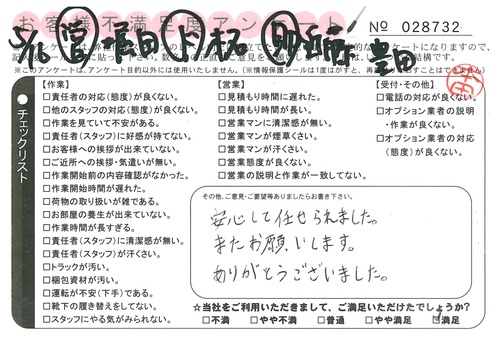 お客様不満足度アンケート
No 028732
5/16 営 福田
豊田
※このアンケートは、アンケート目的以外には使用いたしません。(※情報保護シールは1度はがすと、再
チェックリスト
【作業】
□責任者の対応(態度)が良くない。
□他のスタッフの対応(態度)が良くない。
□作業を見ていて不安がある。
□責任者(スタッフ)に好感が持てない。
□お客様への挨拶が出来ていない。
□ご近所への挨拶・気遣いが無い。
□作業開始前の内容確認がなかった。
□作業開始時間が遅れた。
□荷物の取り扱いが雑である。
□お部屋の養生が出来ていない。
□作業時間が長すぎる。
□責任者(スタッフ)に清潔感が無い。
□責任者(スタッフ)が汗くさい。
□トラックが汚い。
□梱包資材が汚い。
□運転が不安(下手)である。
□靴下の履き替えをしてない。
□スタッフにやる気がみられない。
【営業】
□見積もり時間に遅れた。
□見積もり時間が長い。
□営業マンに清潔感が無い。
□営業マンが煙草くさい。
□営業マンが汗くさい。
□営業態度が良くない。
□営業の説明と作業が一致してない。
【受付・その他】
□電話の対応が良くない。
□オプション業者の説明
・作業が良くない。
□オプション業者の対応
(態度)が良くない。
その他、ご意見・ご要望等ありましたらお書き下さい。
安心して任せられました。
またお願いします。
ありがとうございました。
☆当社をご利用いただきまして、ご満足いただけたでしょうか?
□不満 □やや不満 □普通 □やや満足 ☑満足